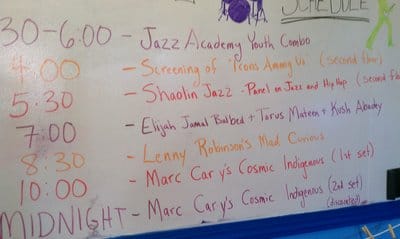 SCHEDULE
30-6:00 - Jazz Academy Youth Combo
4:00 - Screening of "Icons Among Us" (second floor)
5:30 - Shaolin Jazz - Panel on Jazz and Hip Hop (second floor)
7:00 - Elijah Jamal Balbed + Tarus Mateen + Kush Abadey
8:30 - Lenny Robinson's Mad Curious
10:00 - Marc Cary's Cosmic Indigenous (1st set)
MIDNIGHT - Marc Cary's Cosmic Indigenous (2nd set)
(discounted)